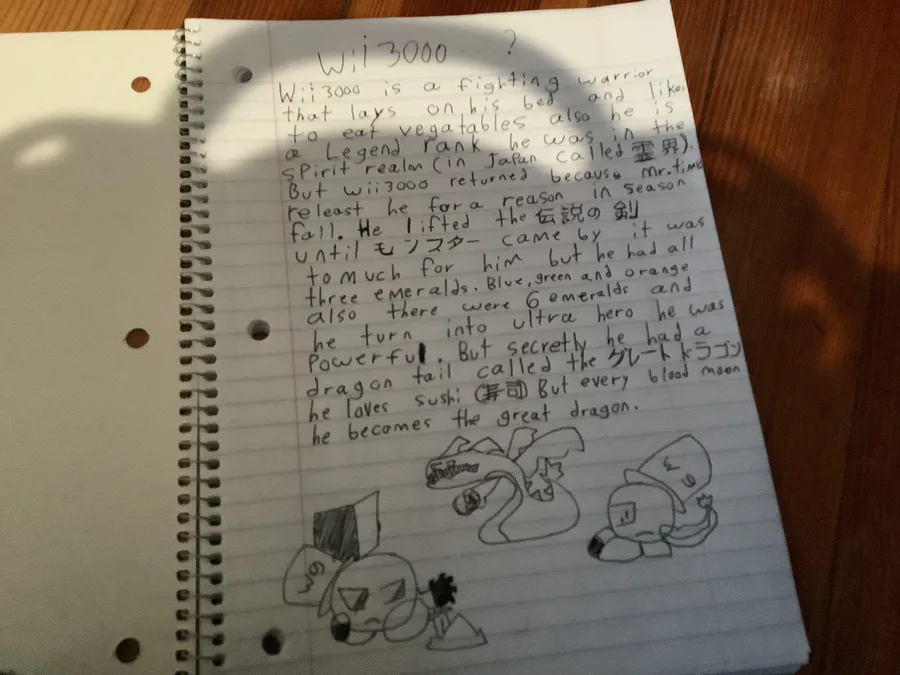 Wii 3000 ?
Wii 3000 is a fighting warrior
that lays on his bed and likes
to eat vegatables also he is
a Legend rank he was in the
spirit realm (in Japan called 霊界).
But wii3000 returned because mr.time
releast he for a reason in season
fall. He lifted the 伝説の剣
until モンスター came by it was
to much for him but he had all
three emeralds. Blue, green and orange
also there were 6 emeralds and
he turn into ultra hero he was
Powerful. But secretly he had a
dragon tail called the グレートドラゴン
he loves sushi (寿司) But every blood moon
he becomes the great dragon.